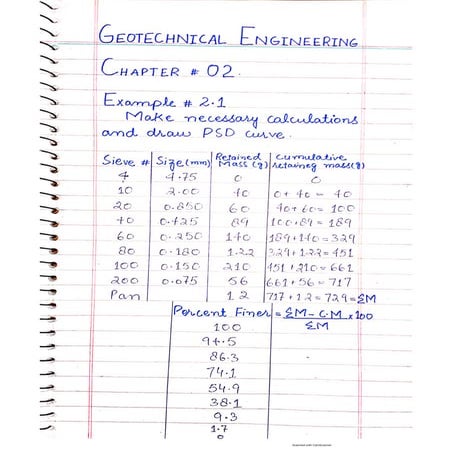 GEOTECHNICAL ENGINEERING
CHAPTER # 02.
Example # 2.1
Make necessary calculations
and draw PSD curve.
Sieve # Size(mm) Retained Mass(g) Cumulative retaineg mass(g)
4 4.75 0 0
10 2.00 40 0+40 = 40
20 0.850 60 40+60 = 100
40 0.425 89 100+89 = 189
60 0.250 140 189+140 = 329
80 0.180 122 329+122 = 451
100 0.150 210 451+210 = 661
200 0.075 56 661+56 = 717
Pan 12 717+12 = 729 = ΣM
Percent Finer = ΣM - C.M / ΣM × 100
100
94.5
86.3
74.1
54.9
38.1
9.3
1.7
0